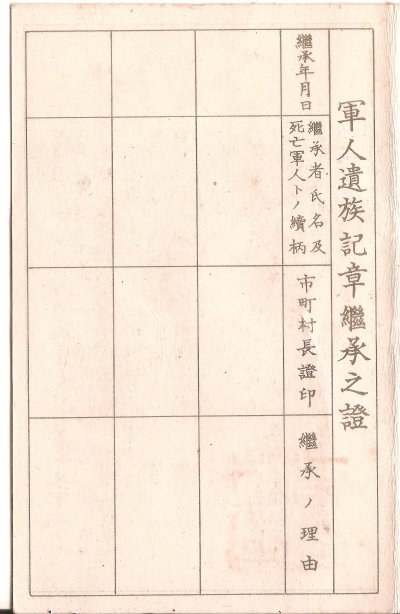 軍人遺族記章繼承之證
繼承年月日
繼承者氏名及
死亡軍人トノ續柄
市町村長證印
繼承ノ理由